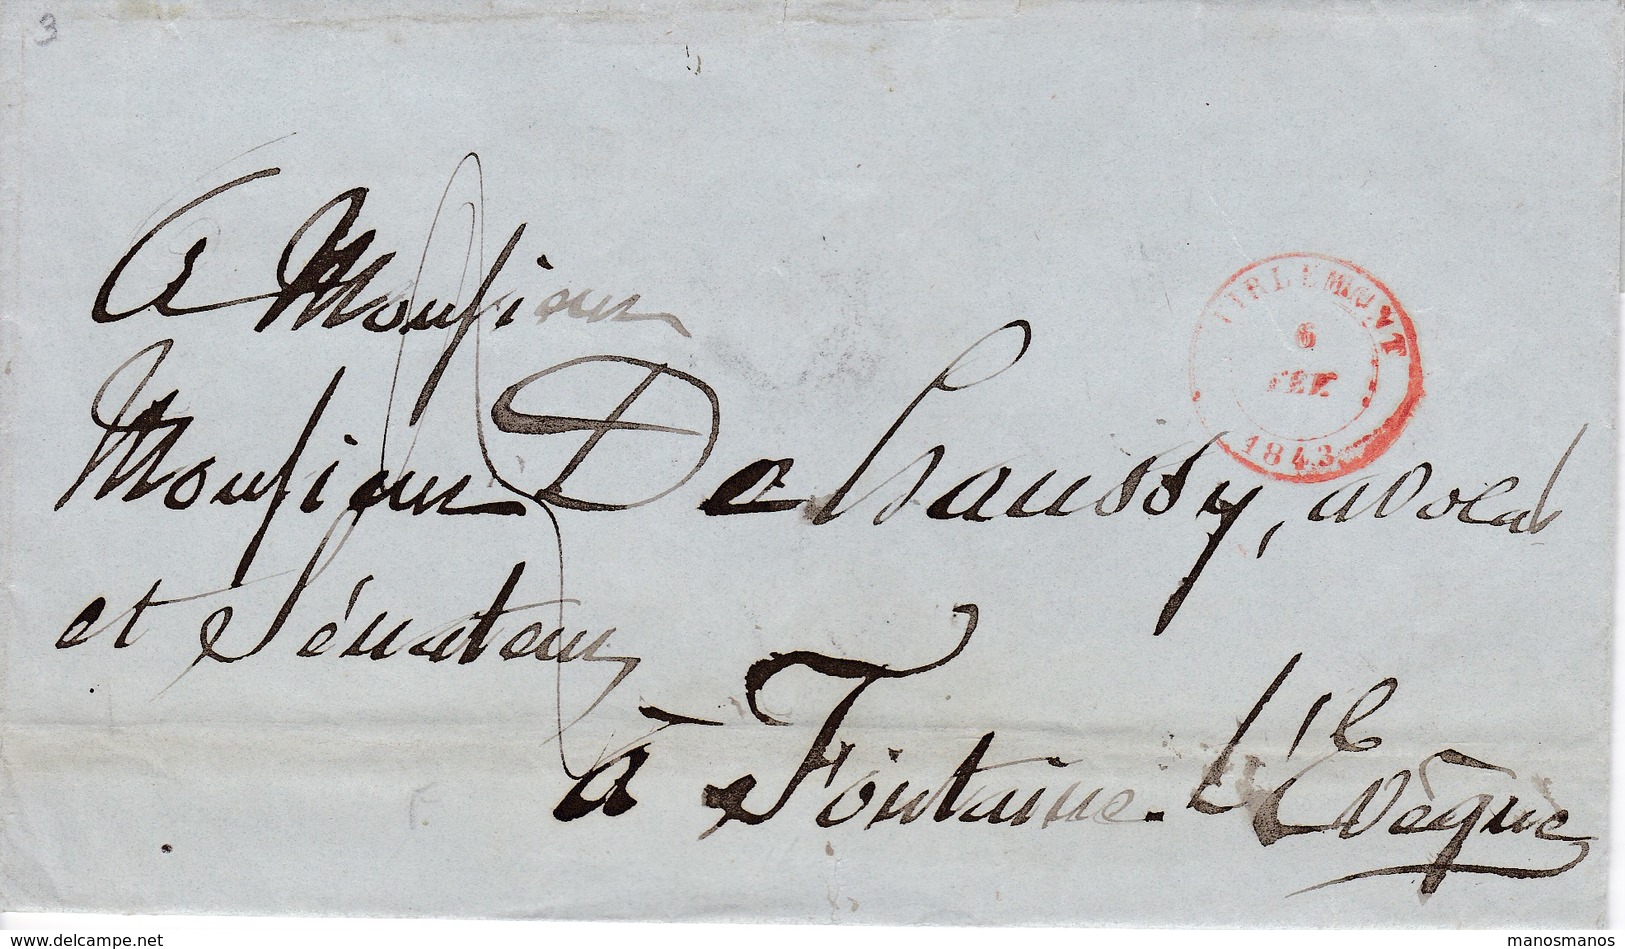 3
A Monsieur
TIRLEMONT
6
FEV.
1843
Monsieur Dehaussy, avocat
et Sénateur
à Fontaine-L'Evêque
www.delcampe.net
manosmanos